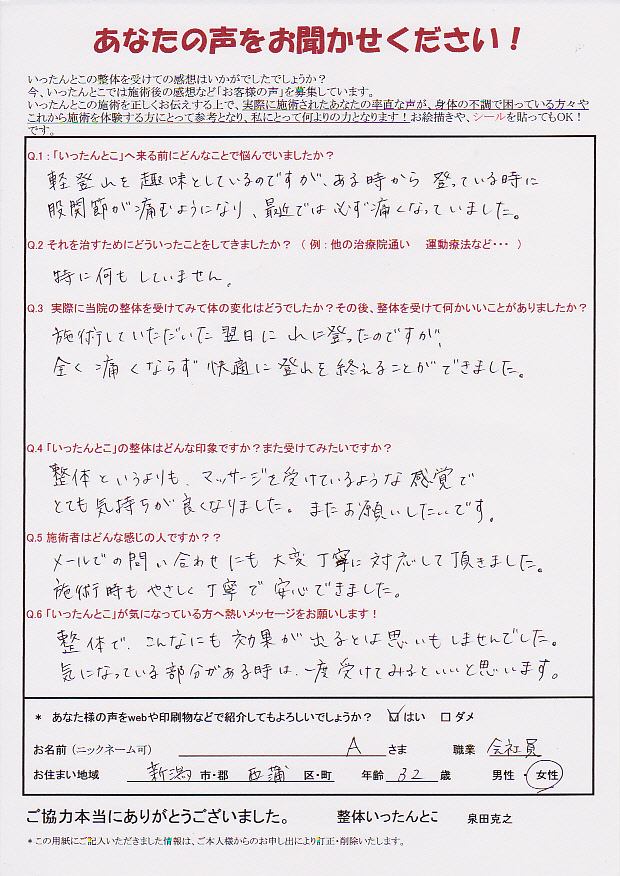 あなたの声をお聞かせください！
いったんとこの整体を受けての感想はいかがでしたでしょうか？
今、いったんとこでは施術後の感想など「お客様の声」を募集しています。
いったんとこの施術を正しくお伝えする上で、実際に施術されたあなたの率直な声が、身体の不調で困っている方々や
これから施術を体験する方にとって参考となり、私にとって何よりの力となります！お絵描きや、シールを貼ってもOK！
です。
Q.1：「いったんとこ」へ来る前にどんなことで悩んでいましたか？
軽登山を趣味としているのですが、ある時から 登っている時に
股関節が痛むようになり、最近では必ず痛くなっていました。
Q.2 それを治すためにどういったことをしてきましたか？（例：他の治療院通い　運動療法など･･･　）
特に何もしていません。
Q.3 実際に当院の整体を受けてみて体の変化はどうでしたか？その後、整体を受けて何かいいことがありましたか？
施術していただいた翌日に山に登ったのですが、
全く痛くならず快適に登山を終えることができました。
Q.4 「いったんとこ」の整体はどんな印象ですか？また受けてみたいですか？
整体というよりも、マッサージを受けているような感覚で
とても気持ちが良くなりました。またお願いしたいです。
Q.5 施術者はどんな感じの人ですか？？
メールでの問い合わせにも大変丁寧に対応して頂きました。
施術時もやさしく丁寧で安心できました。
Q.6 「いったんとこ」が気になっている方へ熱いメッセージをお願いします！
整体で、こんなにも効果が出るとは思いもしませんでした。
気になっている部分がある時は、一度受けてみるといいと思います。
* あなた様の声をwebや印刷物などで紹介してもよろしいでしょうか？ ☑はい □ダメ
お名前（ニックネーム可） A さま 職業 会社員
お住まい地域 新潟 市・郡 西蒲 区・町 年齢 32 歳 男性 ・ 女性
ご協力本当にありがとうございました。 整体いったんとこ 泉田克之
*この用紙にご記入いただきました情報は、ご本人様からのお申し出により訂正・削除いたします。